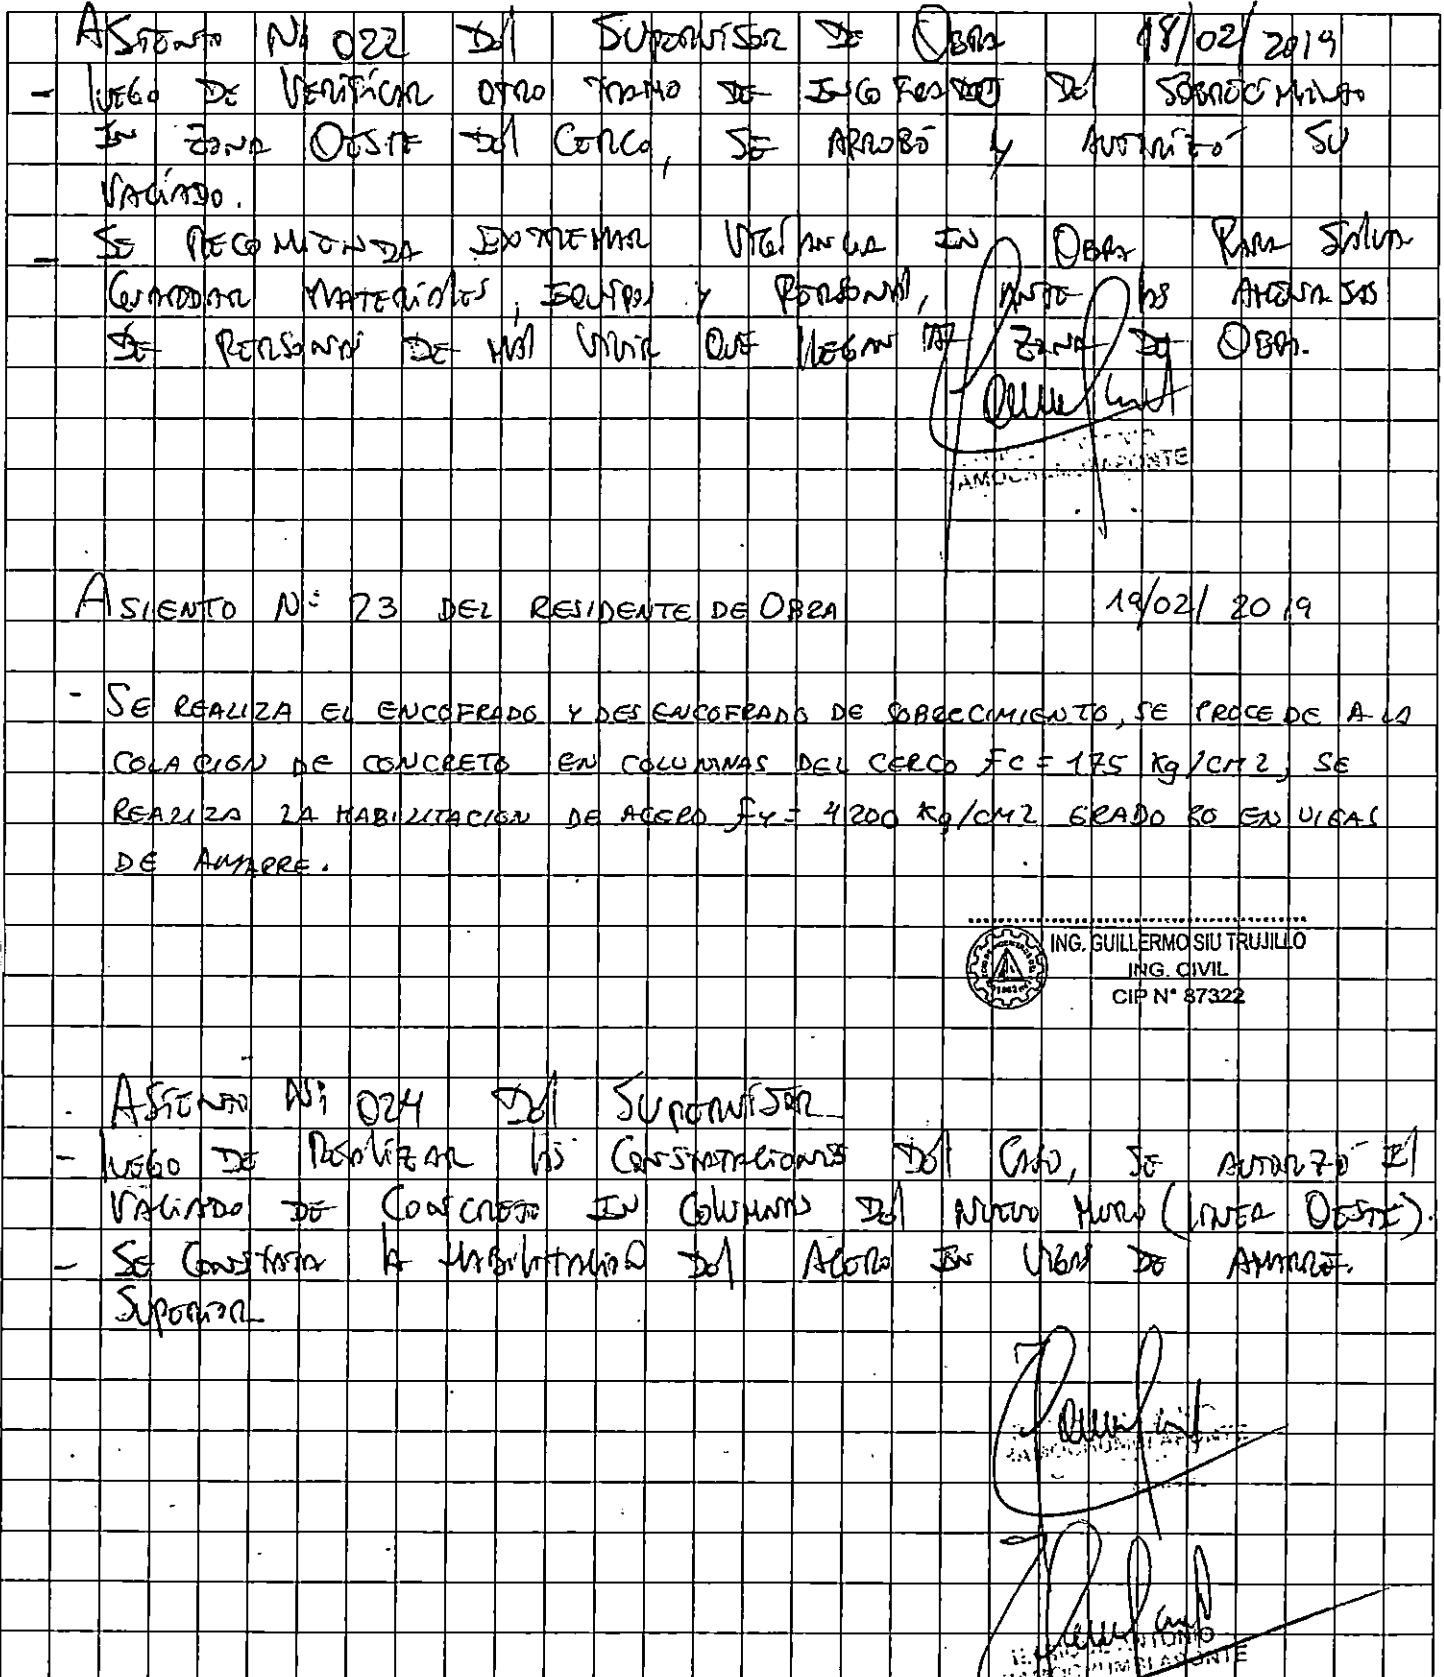 Asiento Nº 022 del Supervisor de Obra 18/02/2019
- Luego de verificar otro tramo de encofrado del sobrecimiento
en zona Oeste del Cerco, se aprobó y autorizó su
vaciado.
- Se recomienda extremar vigilancia en Obra para salva
guardar materiales, equipos y personal, ante las amenazas
de personas de mal vivir que llegan a zona de Obra.
ASIENTO Nº 23 DEL RESIDENTE DE OBRA 19/02/2019
- SE REALIZA EL ENCOFRADO Y DESENCOFRADO DE SOBRECIMIENTO, SE PROCEDE A LA
COLACION DE CONCRETO EN COLUMNAS DEL CERCO Fc = 175 Kg/cm2, SE
REALIZA LA HABILITACION DE ACERO Fy = 4200 Kg/cm2 GRADO 60 EN VIGAS
DE AMARRE.
ING. GUILLERMO SIU TRUJILLO
ING. CIVIL
CIP N° 87322
Asiento Nº 024 del Supervisor
- Luego de realizar las constataciones del caso, se autorizó el
vaciado de concreto en columnas del nuevo muro (Linea Oeste).
- Se constata la habilitación del acero en vigas de amarre.
Superior